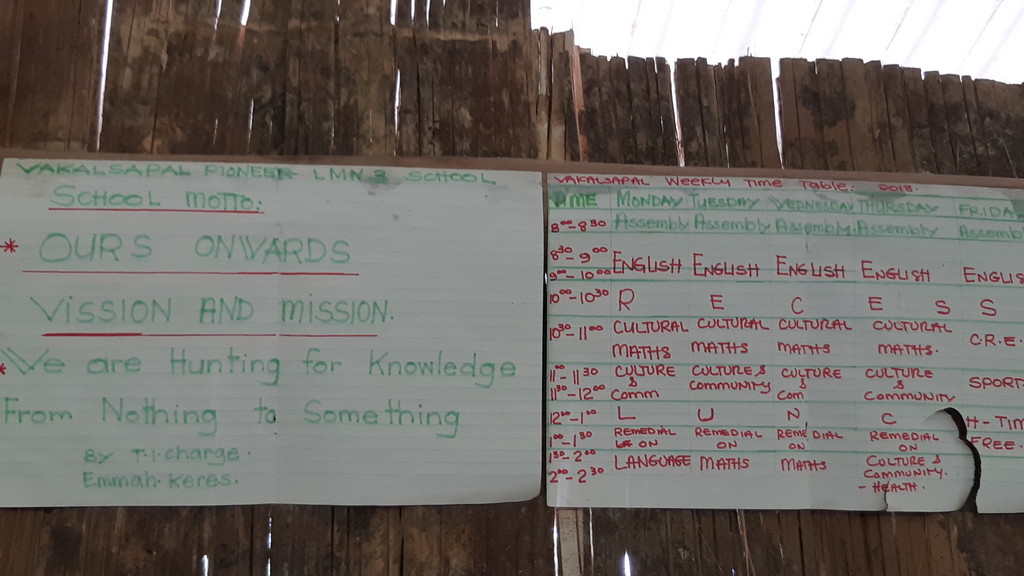 VAKALSAPAL PIONEER LMN 3 SCHOOL
SCHOOL MOTTO:
* OURS ONWARDS
VISSION AND MISSION.
* We are Hunting for Knowledge
From Nothing to Something
By T.I.charge.
Emmah. Keres.
VAKALSAPAL WEEKLY TIME TABLE: 2018.
TIME MONDAY TUESDAY WEDNESDAY THURSDAY FRIDA
8⁰⁰-8³⁰ Assembly Assembly Assembly. Assembly Assembl
8³⁰-9⁰⁰
9⁰⁰-10⁰⁰ ENGLISH ENGLISH ENGLISH ENGLISH ENGLIS
10⁰⁰-10³⁰ R E C E S S
10³⁰-11⁰⁰ CULTURAL MATHS CULTURAL MATHS CULTURAL MATHS CULTURAL MATHS. C.R.E.
11⁰⁰-11³⁰ CULTURE CULTURE & CULTURE CULTURE SPORT
11³⁰-12⁰⁰ & Comm COMMUNITY & Com & COMMUNITY
12⁰⁰-1⁰⁰ L U N C H-TIM
1⁰⁰-1³⁰ REMEDIAL ON REMEDIAL ON REMEDIAL ON REMEDIAL ON FREE.
1³⁰-2⁰⁰ LANGUAGE MATHS MATHS CULTURE &
2⁰⁰-2³⁰ COMMUNITY.
- HEALTH.